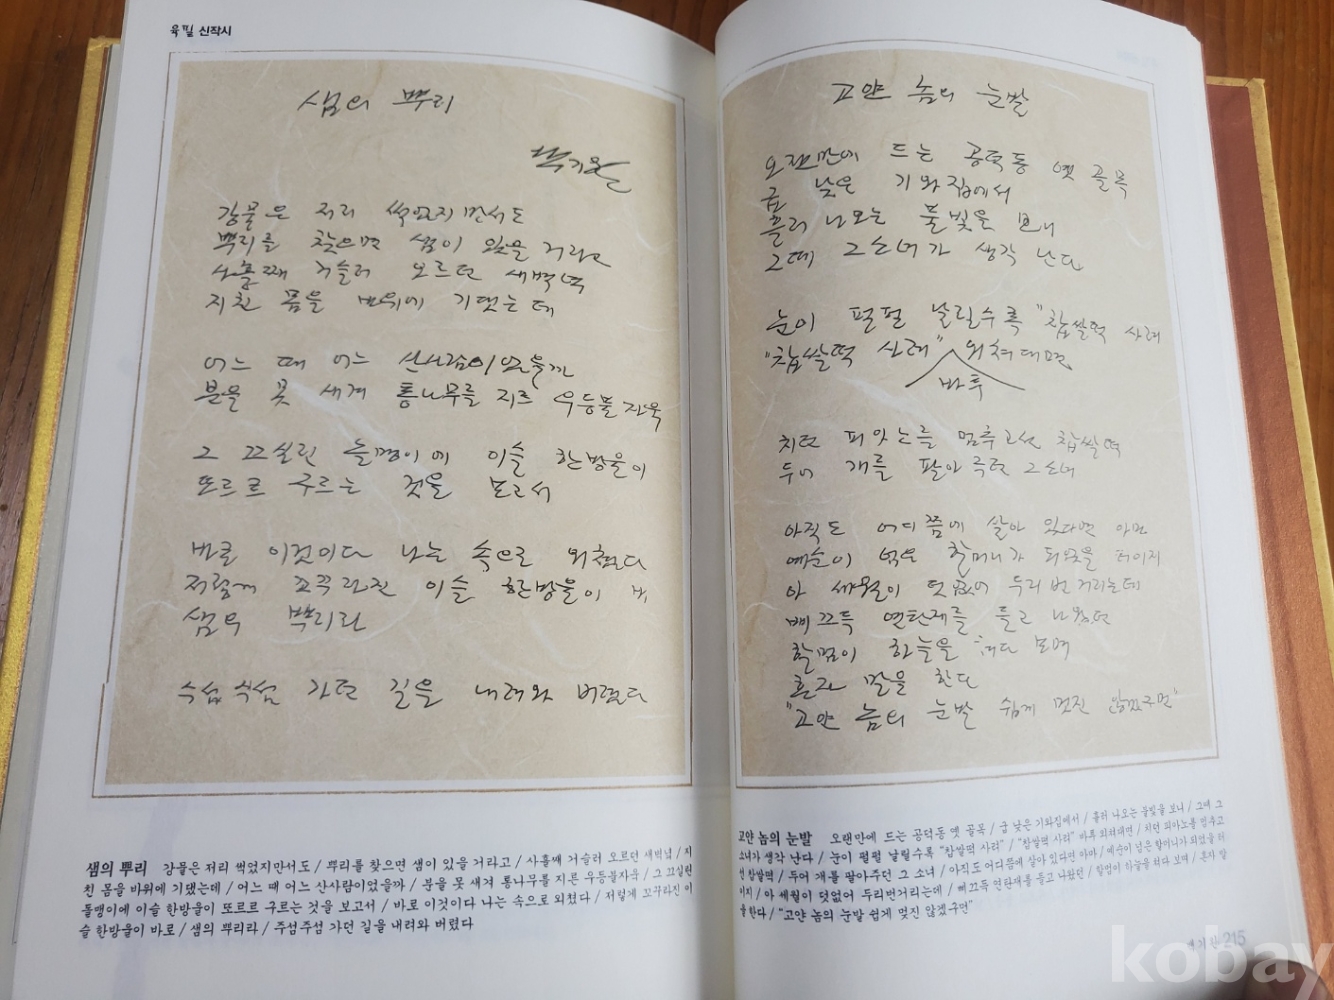 육필 신작시
샘의 뿌리
백기완
강물은 저리 썩었지만서도
뿌리를 찾으면 샘이 있을 거라고
사흘째 거슬러 오르던 새벽녘
지친 몸을 바위에 기댔는데
어느 때 어느 산사람이었을까
분을 못 새겨 통나무를 지른 우등불자욱
그 끄실린 돌멩이에 이슬 한방울이
또르르 구르는 것을 보고서
바로 이것이다 나는 속으로 외쳤다
저렇게 꼬꾸라진 이슬 한방울이 바로
샘의 뿌리라
주섬주섬 가던 길을 내려와 버렸다
샘의 뿌리 강물은 저리 썩었지만서도 / 뿌리를 찾으면 샘이 있을 거라고 / 사흘째 거슬러 오르던 새벽녘 / 지
친 몸을 바위에 기댔는데 / 어느 때 어느 산사람이었을까 / 분을 못 새겨 통나무를 지른 우등불자욱 / 그 끄실린
돌멩이에 이슬 한방울이 또르르 구르는 것을 보고서 / 바로 이것이다 나는 속으로 외쳤다 / 저렇게 꼬꾸라진 이
슬 한방울이 바로 / 샘의 뿌리라 / 주섬주섬 가던 길을 내려와 버렸다
고얀 놈의 눈발
오랜만에 드는 공덕동 옛 골목
굽 낮은 기와집에서
흘러 나오는 불빛을 보니
그때 그 소녀가 생각 난다
눈이 펄펄 날릴수록 "찹쌀떡 사려
"찹쌀떡 사려" 외쳐대면
바투
치던 피아노를 멈추고선 찹쌀떡
두어 개를 팔아주던 그 소녀
아직도 어디쯤에 살아 있다면 아마
예순이 넘은 할머니가 되었을 터이지
아 세월이 덧없어 두리번거리는데
삐꺼득 연탄재를 들고 나왔던
할멈이 하늘을 쳐다 보며
혼자 말을 한다
"고얀 놈의 눈발 쉽게 멎진 않겠구먼"
고얀 놈의 눈발 오랜만에 드는 공덕동 옛 골목 / 굽 낮은 기와집에서 / 흘러 나오는 불빛을 보니 / 그때 그
소녀가 생각 난다 / 눈이 펄펄 날릴수록 "찹쌀떡 사려" "찹쌀떡 사려" 바투 외쳐대면 / 치던 피아노를 멈추고
선 찹쌀떡 / 두어 개를 팔아주던 그 소녀 / 아직도 어디쯤에 살아 있다면 아마 / 예순이 넘은 할머니가 되었을 터
이지 / 아 세월이 덧없어 두리번거리는데 / 삐꺼득 연탄재를 들고 나왔던 / 할멈이 하늘을 쳐다 보며 / 혼자 말
을 한다 / "고얀 놈의 눈발 쉽게 멎진 않겠구먼"
백기완 215
kobay